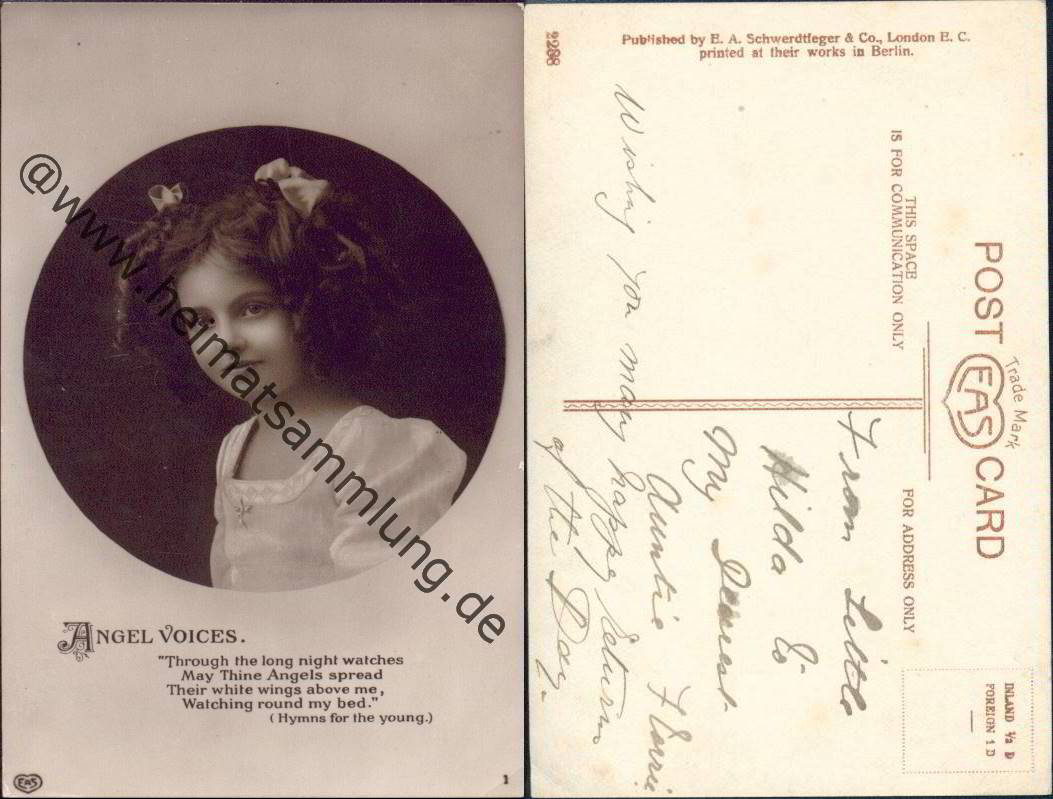 @www.heimatsammlung.de
ANGEL VOICES.
"Through the long night watches
May Thine Angels spread
Their white wings above me,
Watching round my bed."
(Hymns for the young.)
EAS
1
2298
Published by E. A. Schwerdtfeger & Co., London E. C.
printed at their works in Berlin.
POST CARD
Trade Mark
EAS
THIS SPACE
IS FOR COMMUNICATION ONLY
FOR ADDRESS ONLY
INLAND ½ D
FOREIGN 1 D
From Little
Hilda
My Dearest
Auntie Florrie
Wishing you many happy returns
of the Day.